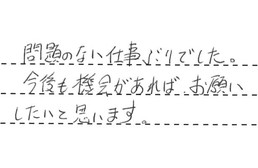 問題のない仕事ぶりでした。
今後も機会があれば、お願い
したいと思います。